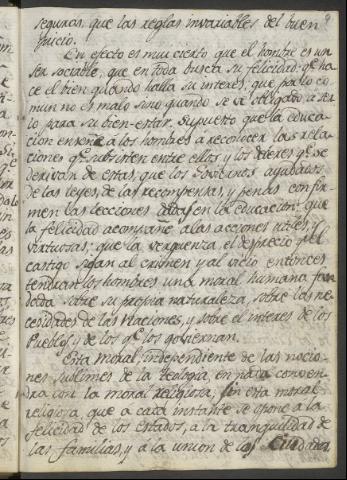 seguros, que las reglas invariables del buen
juicio.
En efecto es muy cierto que el hombre es un
ser sociable, que en toda busca su felicidad: qe. ha-
ce el bien quando halla su interes; que por lo co-
mun no es malo sino quando se ve obligado a ser
lo para su bien-estar. Supuesto que la educa-
cion enseñe a los hombres a reconocer las rela-
ciones qe. subsisten entre ellos y los deberes qe. se
derivan de estas, que los Goviernos ayudados
de las leyes, de las recompensas, y penas confir-
men las lecciones dadas en la educacion: que
la felicidad acompañe a las acciones utiles, y
virtuosas; que la verguenza, el desprecio y el
castigo sigan al crimen y al vicio entonces
tendran los hombres una moral humana fun
dada sobre su propia naturaleza, sobre las ne-
cesidades de las Naciones, y sobre el interes de los
Pueblos y de los qe. los goviernan.
Esta moral independiente de las nocio-
nes sublimes de la teologia, en nada conven-
dra con la moral religiosa, con esta moral
religiosa, que a cada instante se opone a la
felicidad de los estados, a la tranquilidad de
las familias, y a la union de los Ciudadanos